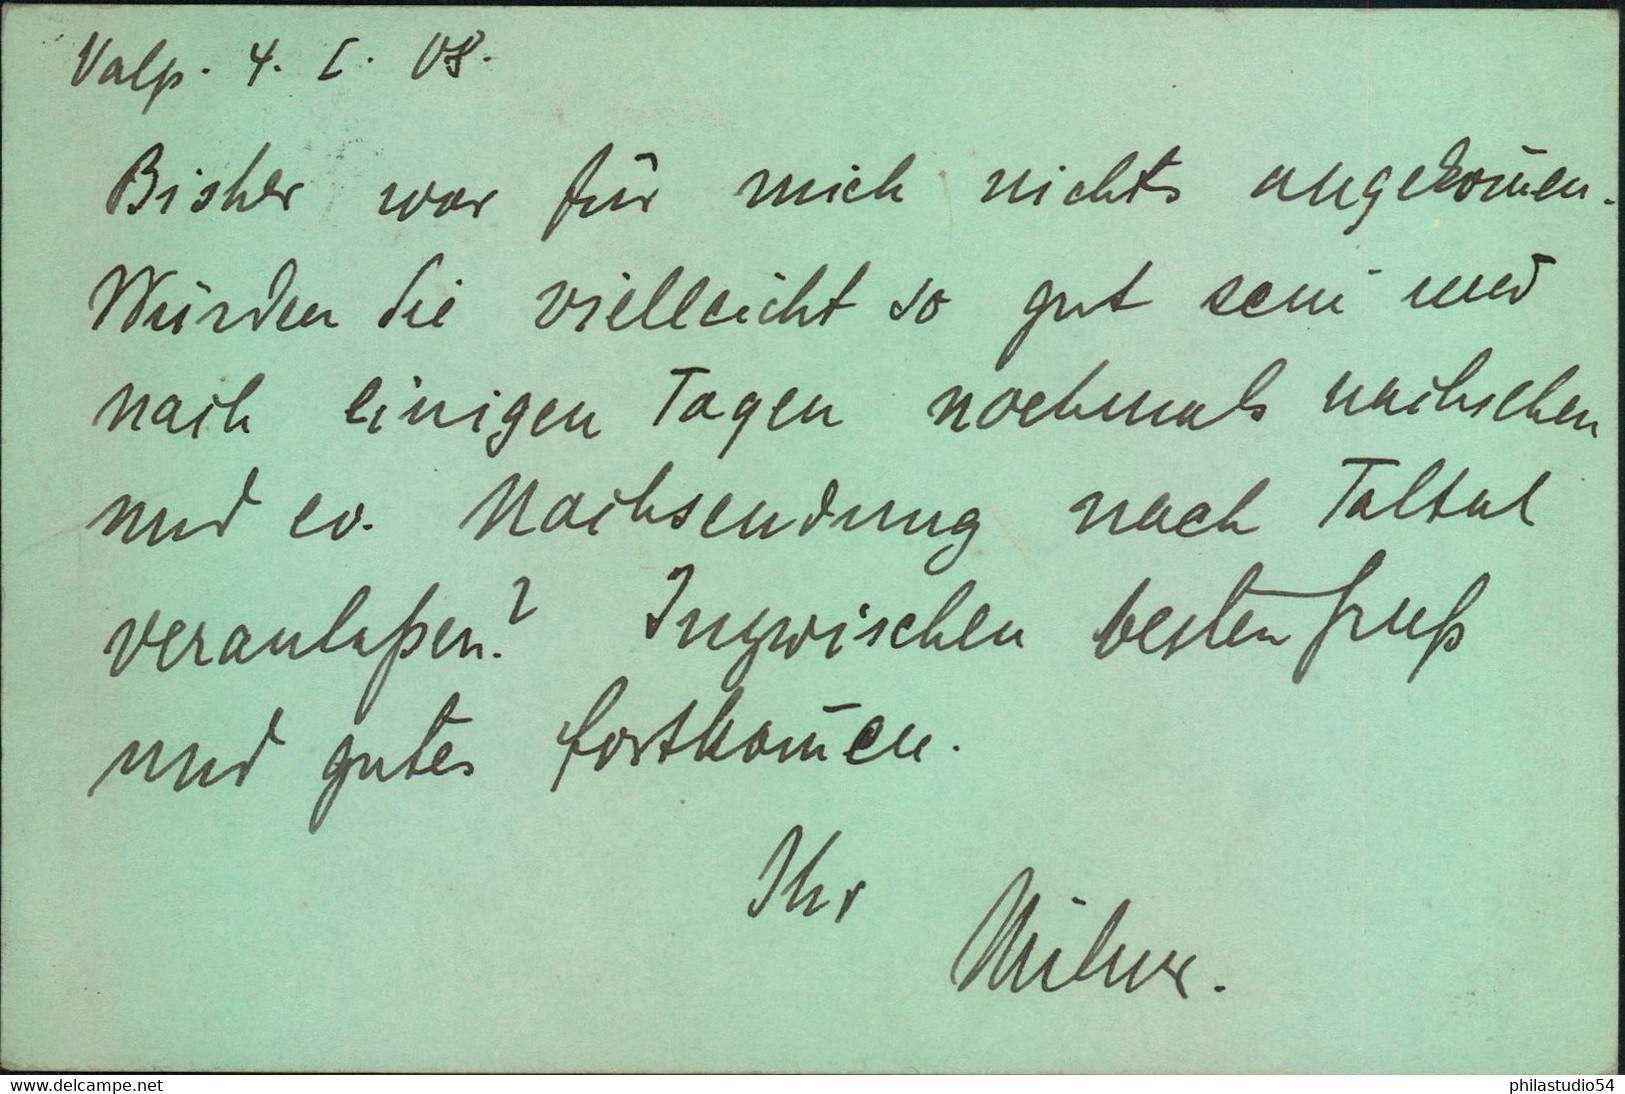 Valp. 4. I. 08.
Bisher war für mich nichts angekom̄en.
Würden Sie vielleicht so gut sein und
nach einigen Tagen nochmals nachsehen
und ev. Nachsendung nach Taltal
veranlaßen? Inzwischen besten Gruß
und gutes Fortkom̄en.
Ihr
www.delcampe.net
philastudio54